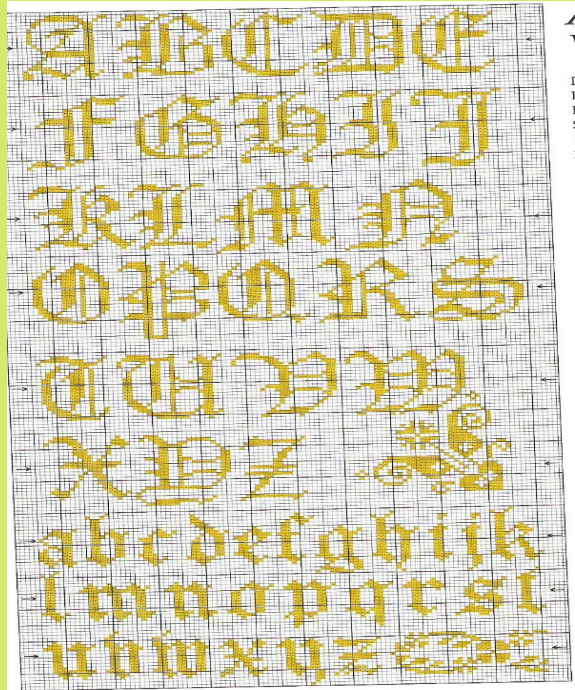 A B C D E
F G H I J
K L M N
O P Q R S
T U V W
X Y Z
a b c d e f g h i j k
l m n o p q r s t
u v w x y z